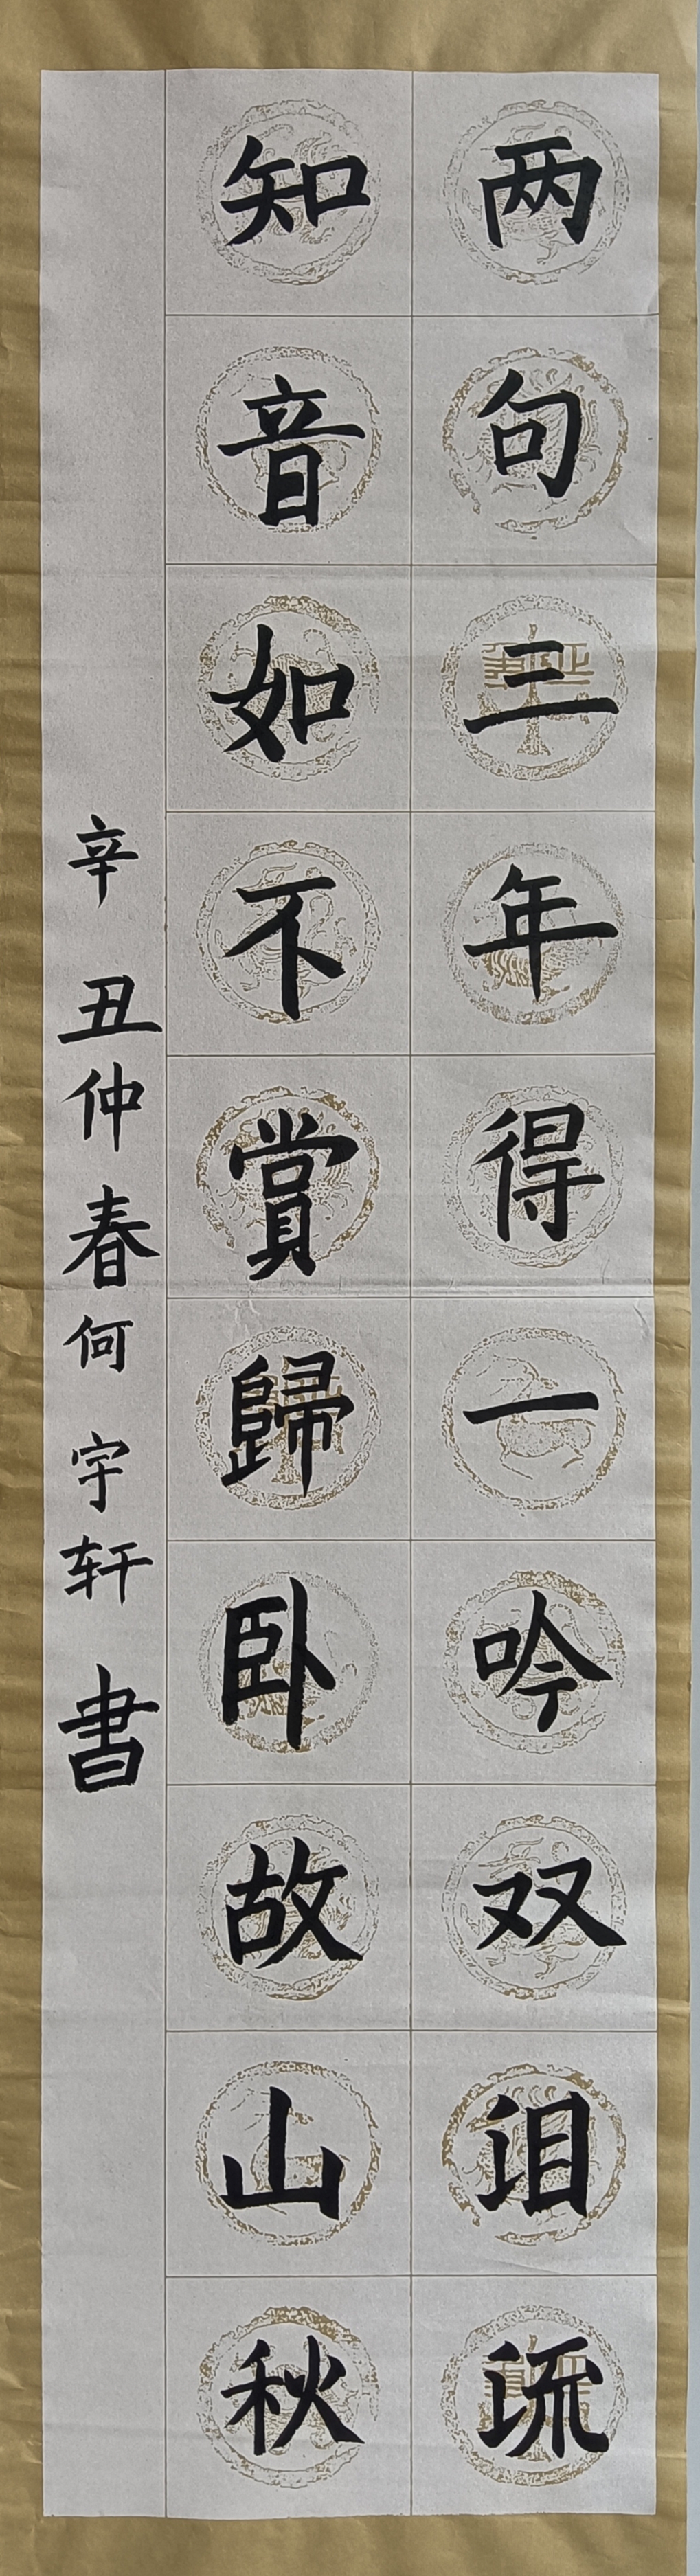 两句三年得一吟双泪流
知音如不賞歸卧故山秋
辛丑仲春何宇轩書